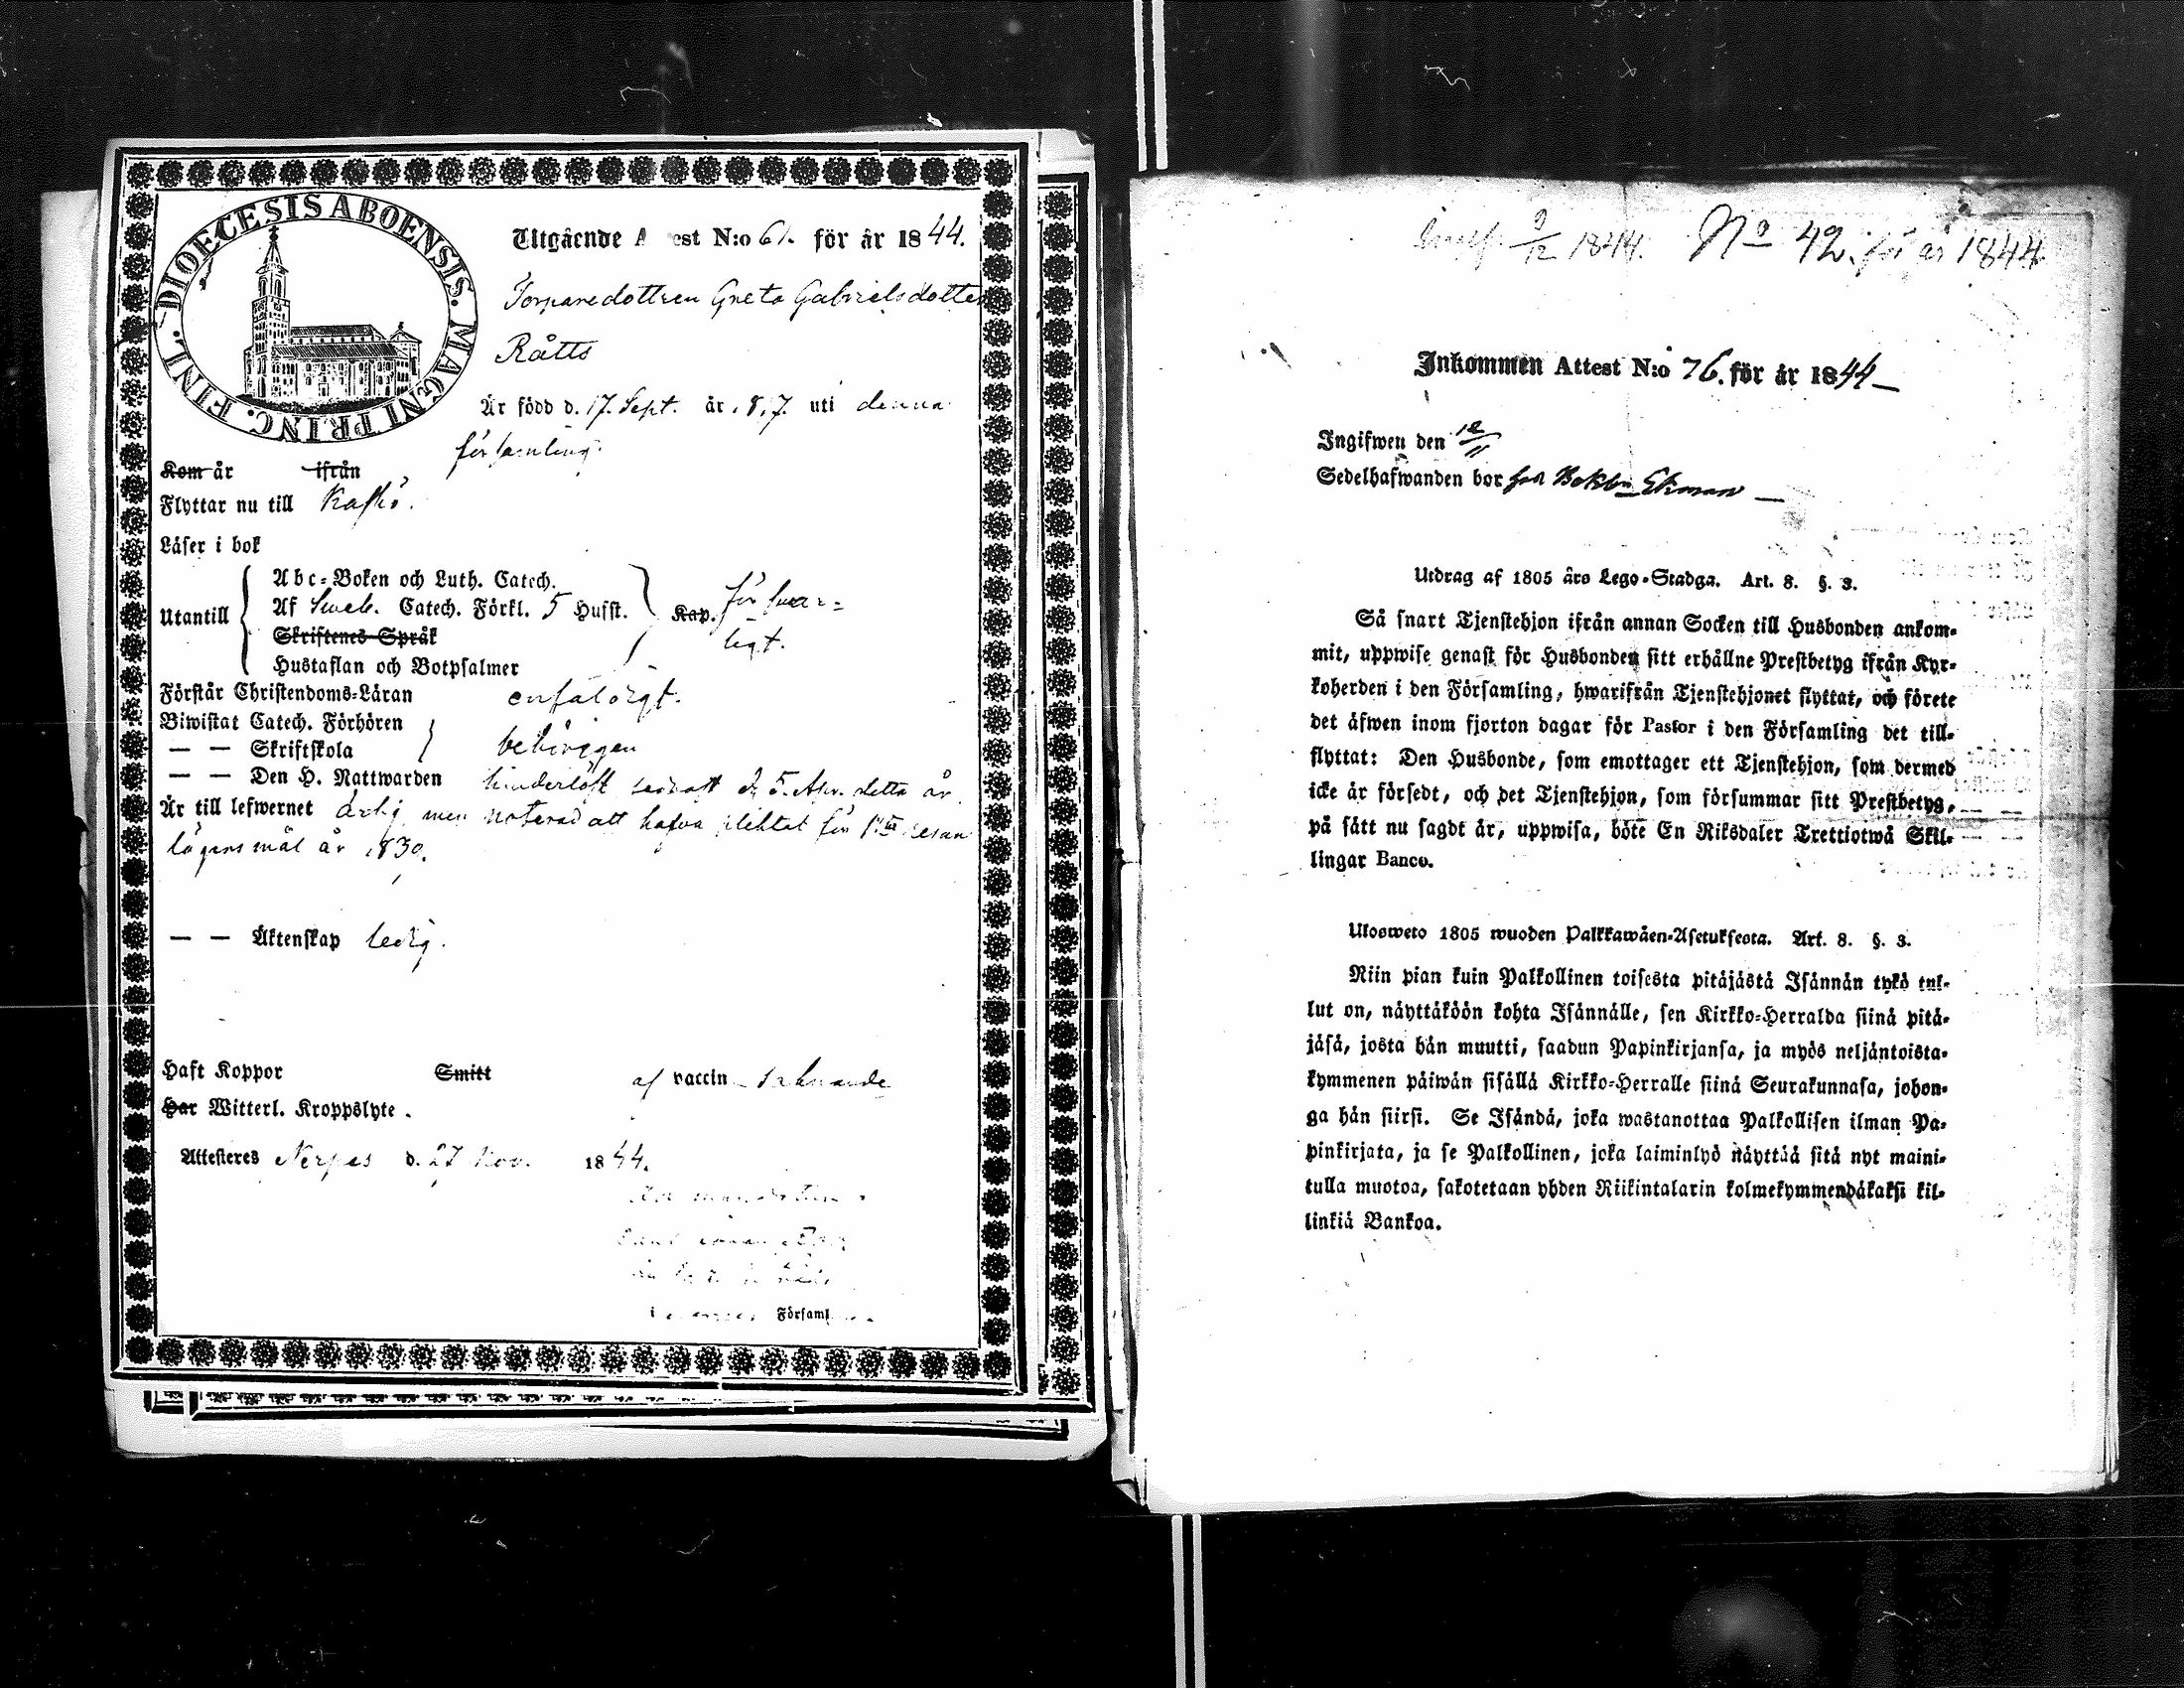 DIOECESIS ABOENSIS. MAGNI PRINC. FINL.
Utgående A est N:o 61. för år 1844.
Torparedottren Greta Gabrielsdotter
Råtts
Är född d. 17. Sept. år 1817. uti denna
församling.
Kom år ifrån
Flyttar nu till Kaskö.
Läser i bok
Utantill
Abc-Boken och Luth. Catech.
Af Sweb. Catech. Förkl. 5 Husst.
Skriftenes Språk
Hustaflan och Botpsalmer
Kap. försvar=
ligt.
Förstår Christendoms-Läran enfaldigt.
Biwistat Catech. Förhören
— — Skriftskola behörigen
— — Den H. Nattwarden hinderlöst sednast d. 5. detta år.
Är till lefwernet ärlig men noterad att hafva pliktat för 1sta resan
lägersmål år 1830.
— — Äktenskap ledig.
Haft Koppor Smitt af vaccin saknande
Har Witterl. Kroppslyte.
Attesteras Nerpes d. 27 Nov. 1844.
Församl
9/12 1844. No 42. för år 1844
Inkommen Attest N:o 76. för år 1844
Ingifwen den 12/11
Sedelhafwanden bor Ekman
Utdrag af 1805 års Lego-Stadga. Art. 8. §. 3.
Så snart Tjenstehjon ifrån annan Socken till Husbonden ankom-
mit, uppwise genast för Husbonden sitt erhållne Prestbetyg ifrån Kyr-
koherden i den Församling, hwarifrån Tjenstehjonet flyttat, och förete
det äfwen inom fjorton dagar för Pastor i den Församling det till-
flyttat: Den Husbonde, som emottager ett Tjenstehjon, som dermed
icke är försedt, och det Tjenstehjon, som försummar sitt Prestbetyg,
på sätt nu sagdt är, uppwisa, böte En Riksdaler Trettiotwå Skil-
lingar Banco.
Ulosweto 1805 wuoden Palkkawäen-Asetuksesta. Art. 8. §. 3.
Niin pian kuin Palkollinen toisesta pitäjästä Isännän tykö tul-
lut on, näyttäköön kohta Isännälle, sen Kirkko-Herralda siinä pitä-
jäsä, josta hän muutti, saadun Papinkirjansa, ja myös neljäntoista-
kymmenen päiwän sisällä Kirkko-Herralle siinä Seurakunnasa, johon-
ga hän siirsi. Se Isändä, joka wastanottaa Palkollisen ilman Pa-
pinkirjata, ja se Palkollinen, joka laiminlyö näyttää sitä nyt maini-
tulla muotoa, sakotetaan yhden Riikintalarin kolmekymmendäkaksi kil-
linkiä Bankoa.